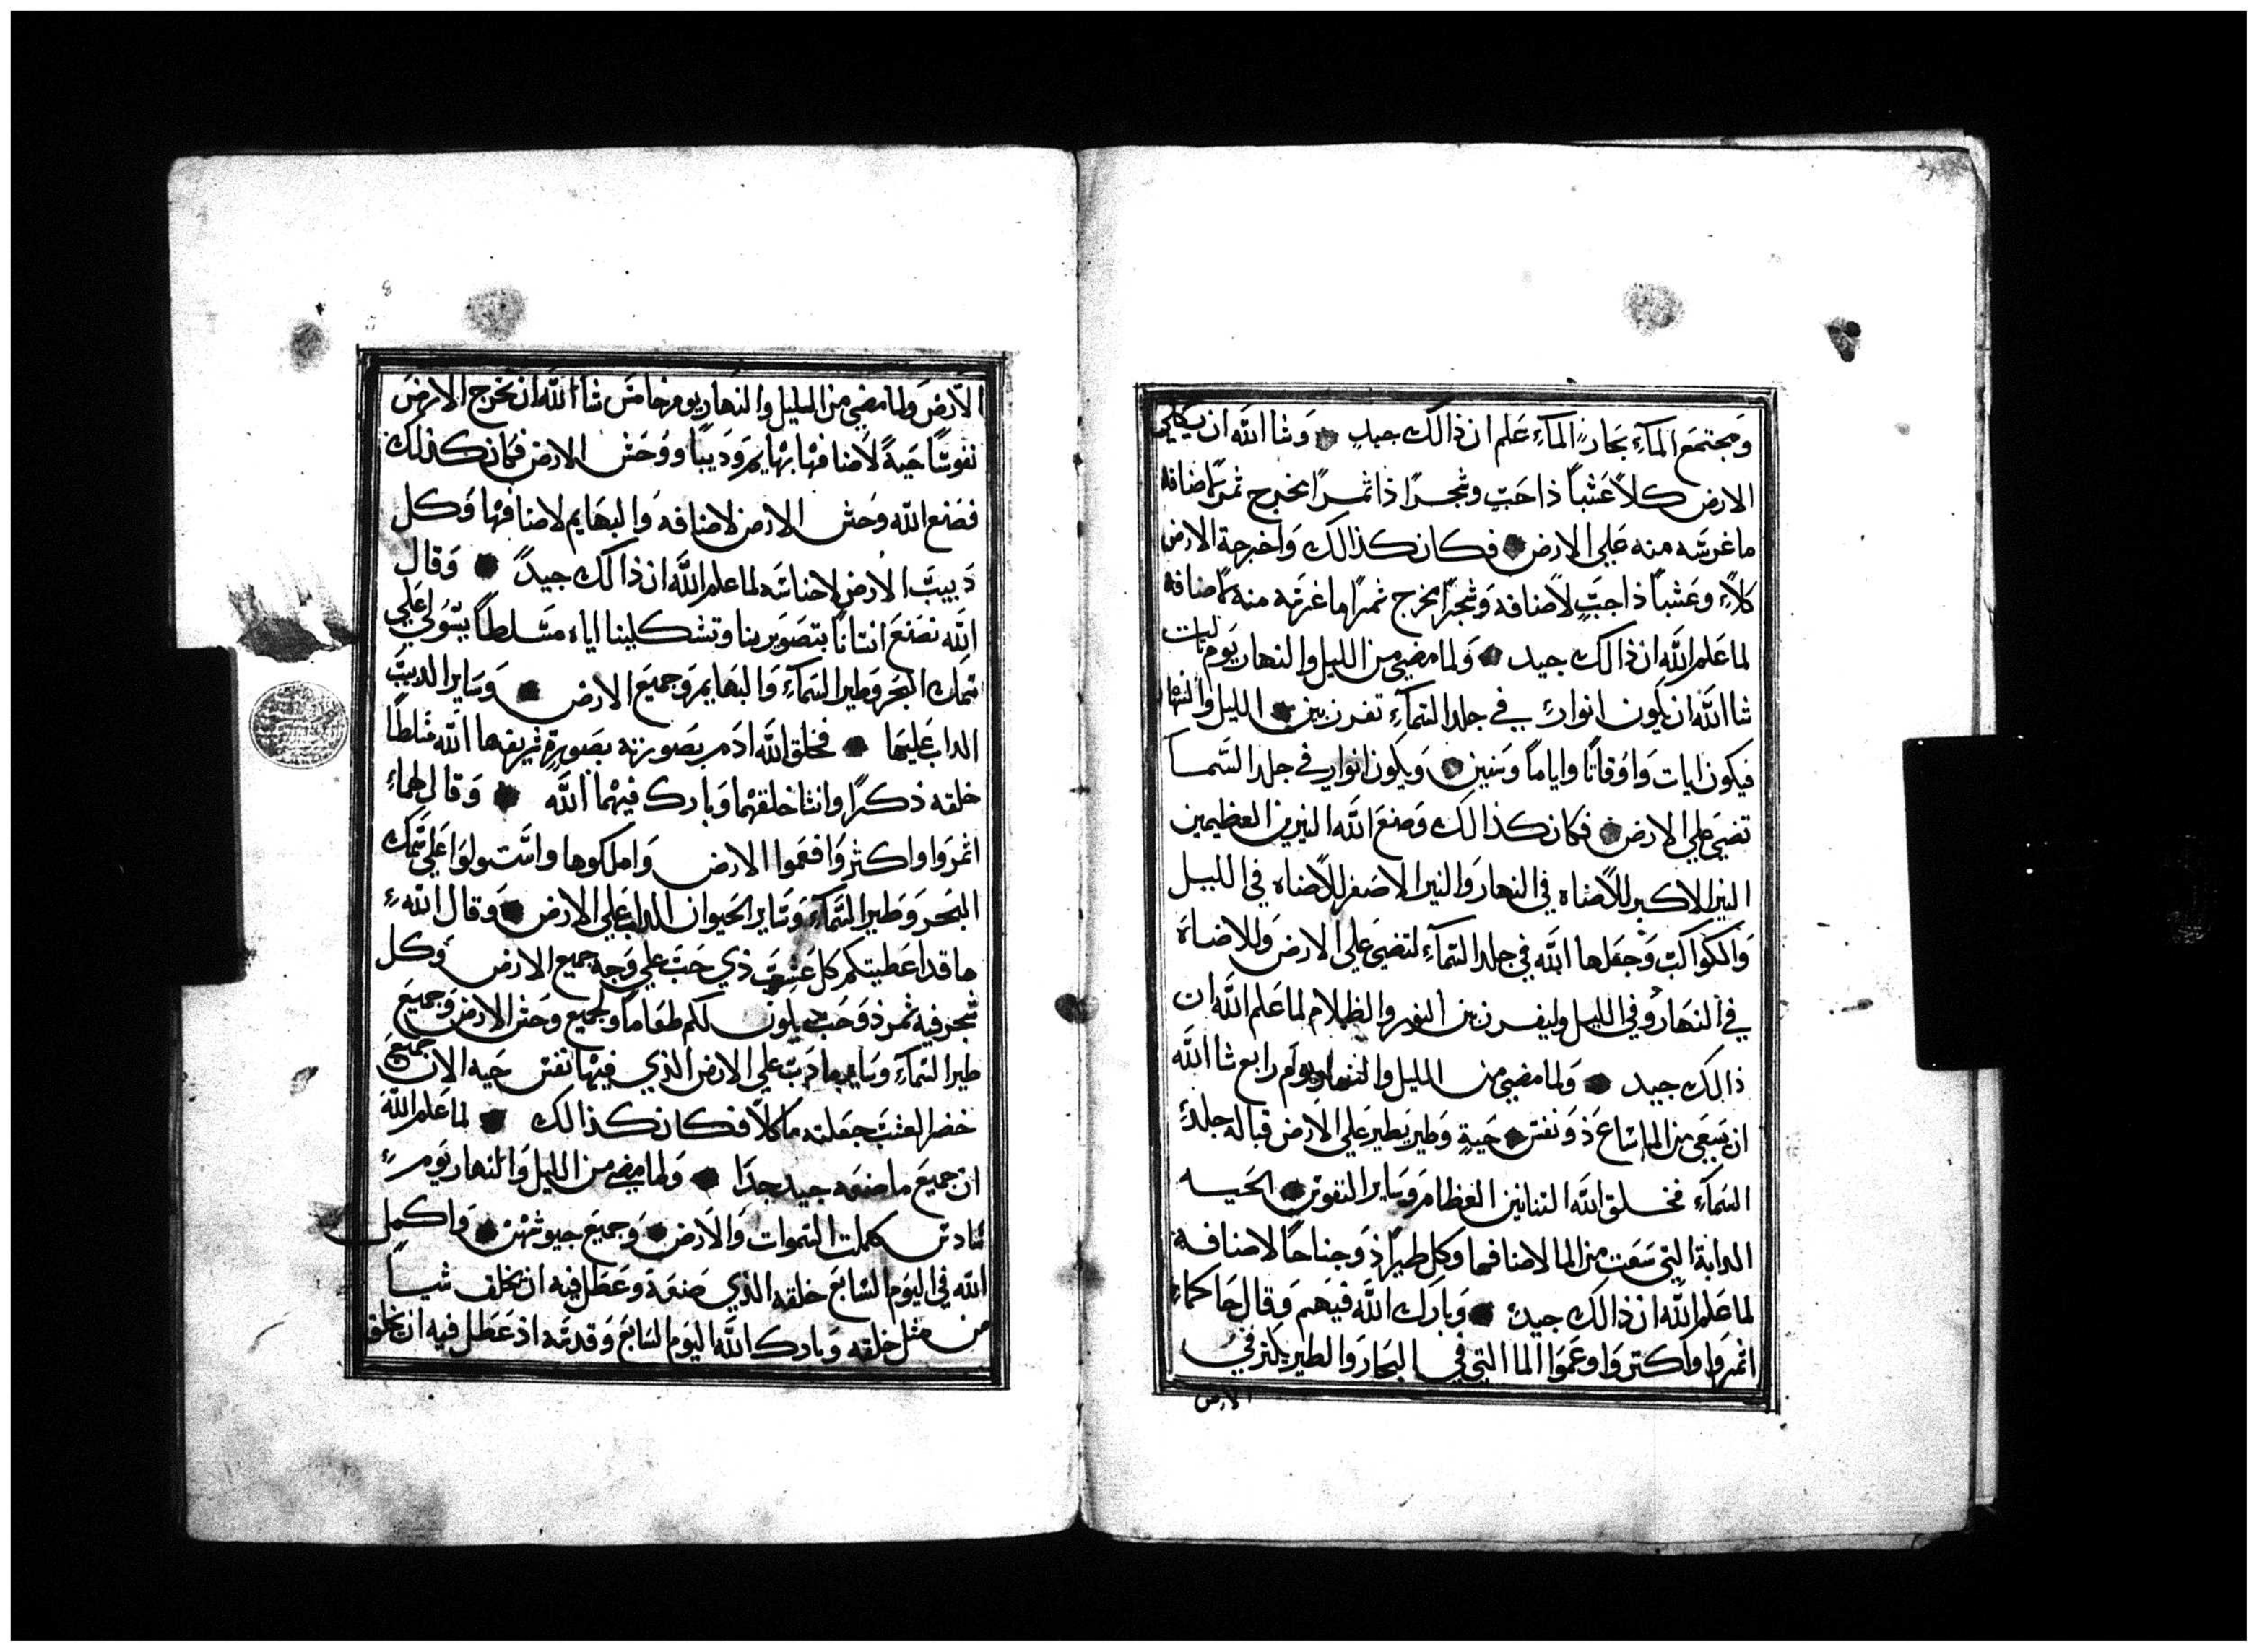 ومجتمع المآءِ بحار المآءِ علم ان ذالك جيدٍ وشا الله ان يكلي
الارض كلاً عَشباً ذا حَبّ وشجراً ذا ثمراً مخرج ثمر لاضافه
ما غرسه منه علي الارض فكان كذالك واخرجة الارض
كلاءً وعَشباً ذا حبٍّ لاصنافه وشجرًا مخرج ثمرًا ما غرسه منه لاصنافه
لما علم الله ان ذالك جيد ولما مضي من الليل والنهار يوم ثالث
شا الله ان يكون انوار في جلد السمآءِ تفرز بين الليل والنهار
فيكون ايات واوقاتًا واياماً وسنين ويكون انوار في جلد السما
تضي علي الارض فكان كذالك وصنع الله النيرين العظيمين
النير الاكبر للاضاه في النهار والنير الاصغر للاضاه في الليل
والكواكب وجعلها الله في جلد السمآءِ لتضي علي الارض وللاضاة
في النهار وفي الليل وليفرز بين النور والظلام لما علم الله ان
ذالك جيد ولما مضي من الليل والنهار يوم رابع شا الله
ان يسعي من الما ساع ذو نفس حيةٍ وطير يطير علي الارض قبالة جلد
السمآءِ فخلق الله التنانين العظام وساير النفوس الحيه
الدابة التي سعت من الما لاصنافها وكل طيرًا ذو جناحًا لاصنافه
لما علم الله ان ذالك جيد وبارك الله فيهم وقال حاكما
اثمروا واكتروا وعموا الما التي في البحار والطير يكثر في
الارض
الارض ولما مضي من الليل والنهار يوم خامس شا الله ان تخرج الارض
نفوسًا حيةً لاصنافها بهايم ودبيبًا ووحش الارض فكان كذلك
فصنع الله وحش الارض لاصنافه والبهايم لاصنافها وكل
دبيب الارض لاجناسه لما علم الله ان ذالك جيدً وقال
الله نصنع انسانًا بتصويرنا وتشكيلنا اياه مسلطاً يستولي علي
سمك البحر وطير السمآءِ والبهايم وجميع الارض وساير الدبيب
الداب عليها فخلق الله ادم بصورته بصورةٍ شريفها الله مسلطًا
خلقه ذكرًا وانثا خلقهما وبارك فيهما الله وقال لهما
اثمروا واكثروا فعموا الارض واملكوها واستولوا علي سمك
البحر وطير السمآء وساير الحيوان الداب علي الارض وقال الله
ها قد اعطيتكم كل عشب ذي حب علي وجه جميع الارض وكل
شجر فيه ثمر ذو حب يكون لكم طعاما ولجميع وحش الارض وجميع
طير السمآءِ وساير ما دب علي الارض الذي فيها نفس حيه الان جميع
خضر العشب جعلته ماكلاً فكان كذالك لما علم الله
ان جميع ما صنعه جيد جدًا ولما مضي من الليل والنهار يوم
سادس كملت السموات والارض وجميع جيوشهن واكمل
الله في اليوم السابع خلقه الذي صنعة وعطل فيه ان يخلق شياً
من مثل خلقه وبارك الله اليوم السابع وقدسه اذ عطل فيه ان يخلق